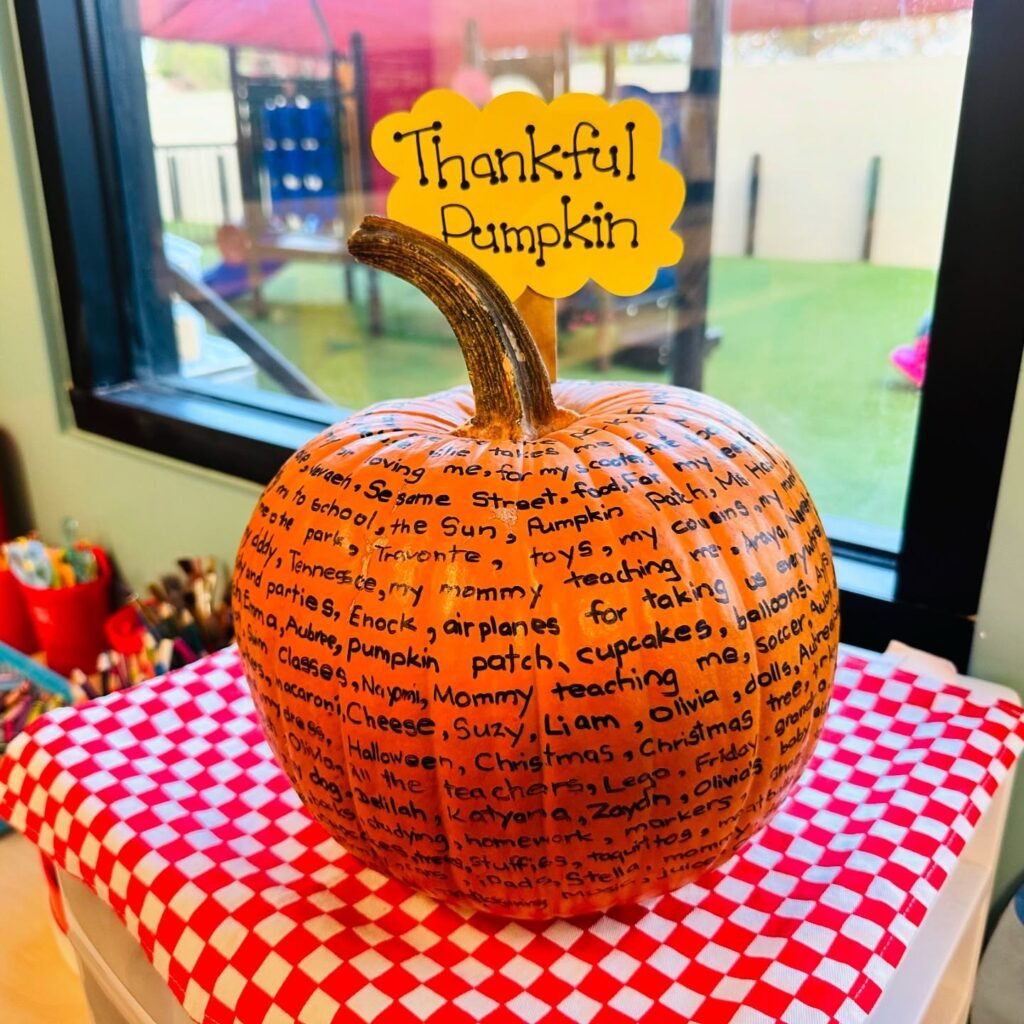 Thankful
Pumpkin
she takes me
loving me, for my scooter,
Nevaeh, Sesame Street, food, For my
to school, the Sun, Pumpkin Patch, Ms
the park, Travonte, toys, my cousins, my
daddy, Tennessee, my mommy teaching me, Araya,
and parties, Enock, airplanes for taking us everywhere
Emma, Aubree, pumpkin patch, cupcakes, balloons,
Classes, Nayomi, Mommy teaching me, Soccer,
macaroni, Cheese, Suzy, Liam, Olivia, dolls,
dress, Halloween, Christmas, Christmas tree,
Olivia, All the teachers, Lego, Friday
dog, Delilah, Katyana, Zaydn, Olivia's baby
studying homework, markers
trees, stuffies, taquitos,
Dads, Stella, mom
music